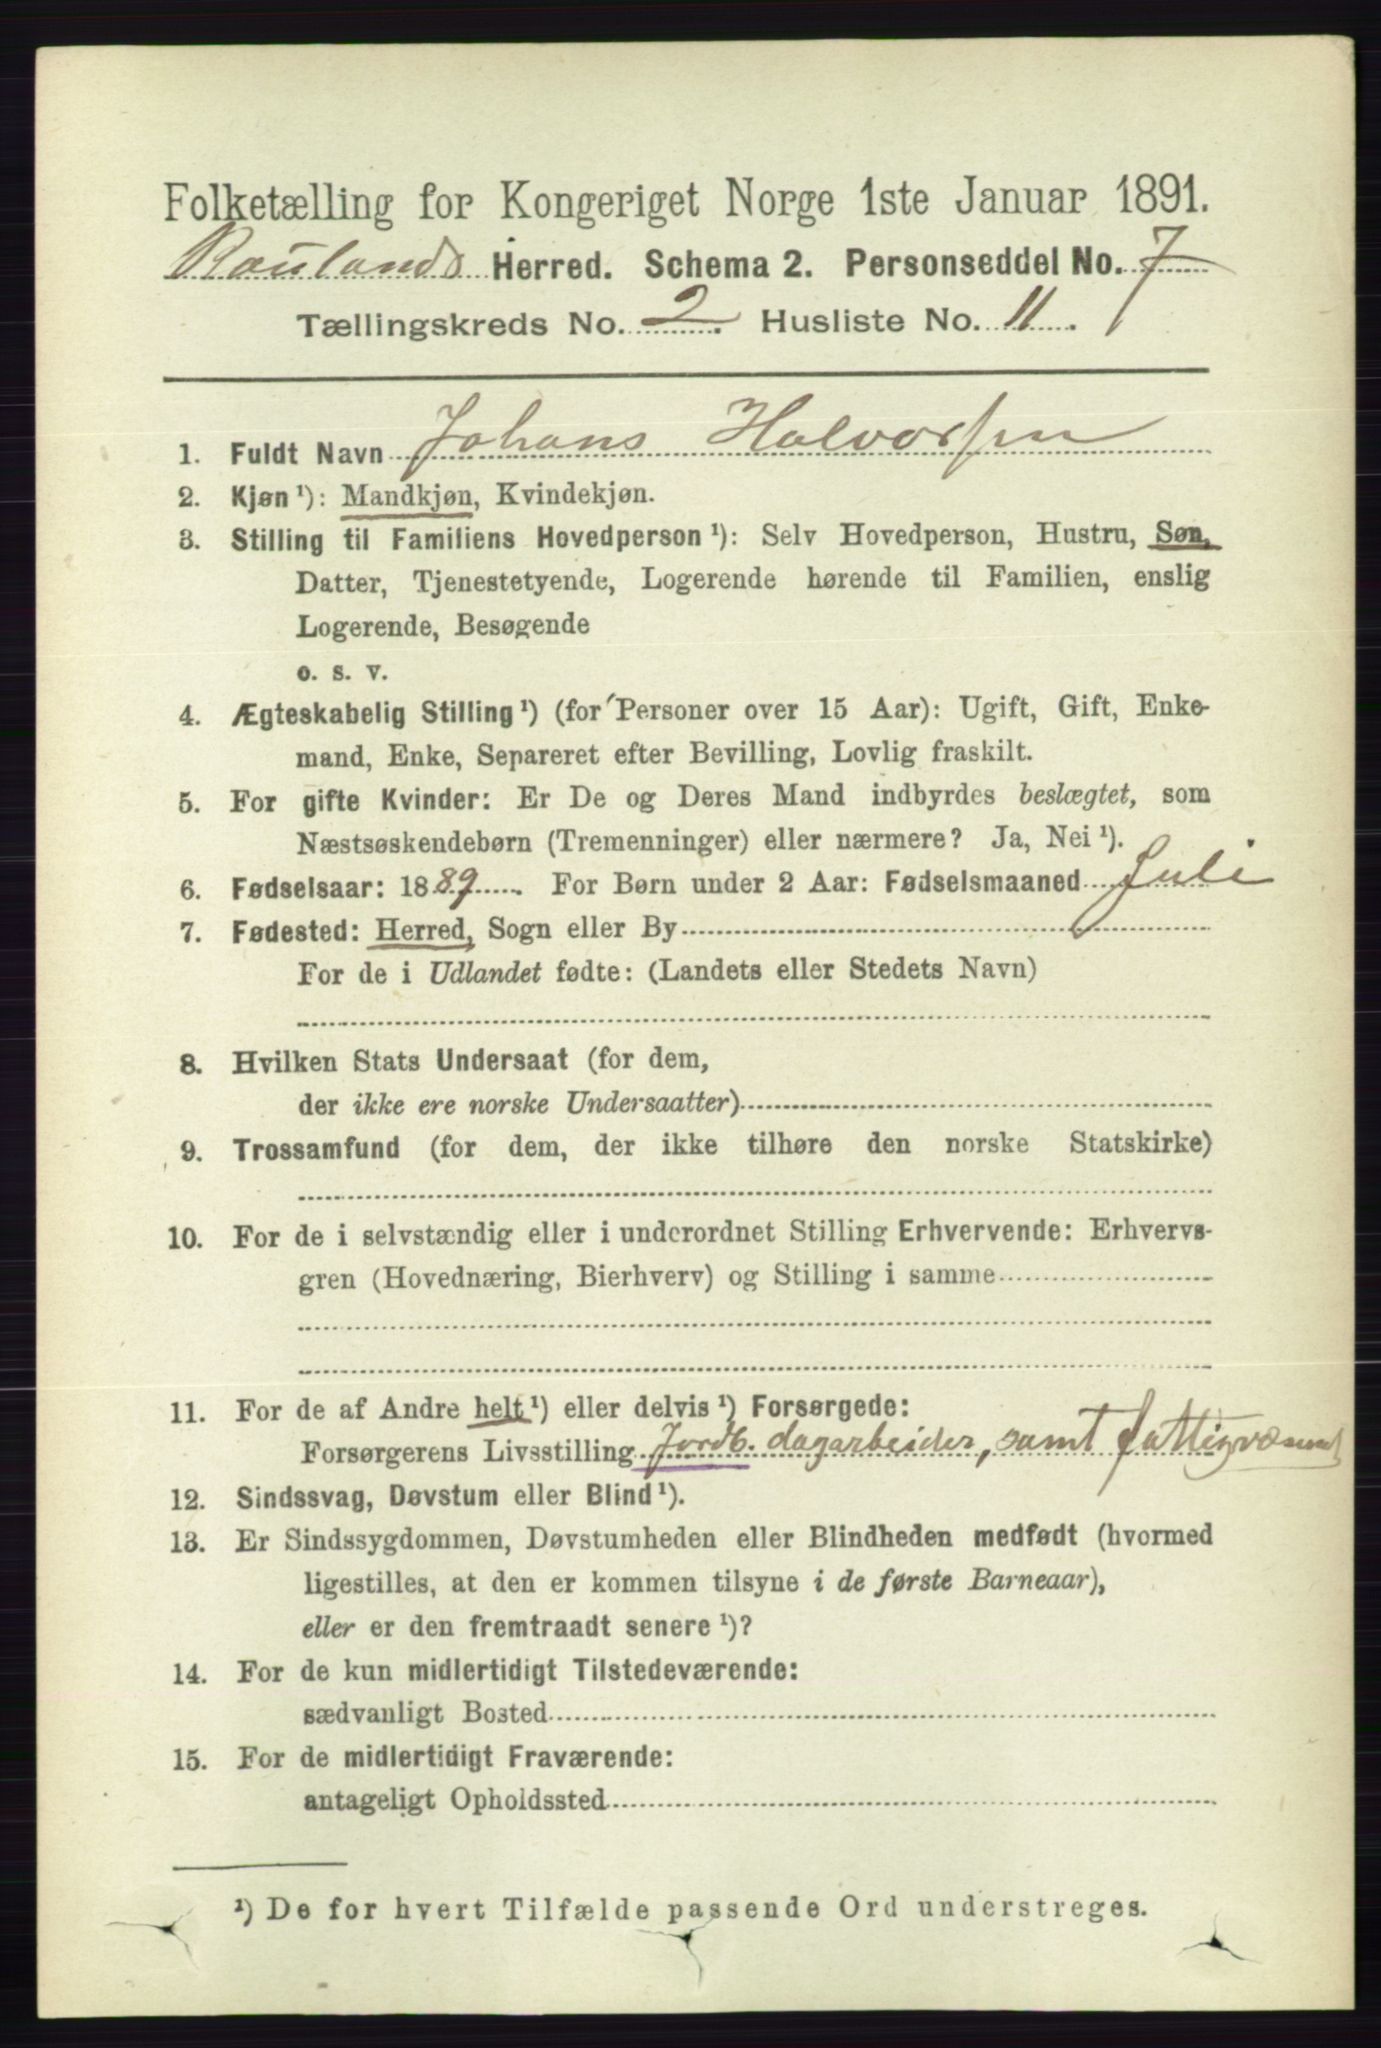 Folketælling for Kongeriget Norge 1ste Januar 1891.
Raulands Herred. Schema 2. Personseddel No. 7
Tællingskreds No. 2. Husliste No. 11.
1. Fuldt Navn Johans Halvorsen
2. Kjøn ¹): Mandkjøn, Kvindekjøn.
3. Stilling til Familiens Hovedperson ¹): Selv Hovedperson, Hustru, Søn,
Datter, Tjenestetyende, Logerende hørende til Familien, enslig
Logerende, Besøgende
o. s. v.
4. Ægteskabelig Stilling ¹) (for Personer over 15 Aar): Ugift, Gift, Enke-
mand, Enke, Separeret efter Bevilling, Lovlig fraskilt.
5. For gifte Kvinder: Er De og Deres Mand indbyrdes beslægtet, som
Næstsøskendebørn (Tremenninger) eller nærmere? Ja, Nei ¹).
6. Fødselsaar: 1889. For Børn under 2 Aar: Fødselsmaaned Juli
7. Fødested: Herred, Sogn eller By
For de i Udlandet fødte: (Landets eller Stedets Navn)
8. Hvilken Stats Undersaat (for dem,
der ikke ere norske Undersaatter)
9. Trossamfund (for dem, der ikke tilhøre den norske Statskirke)
10. For de i selvstændig eller i underordnet Stilling Erhvervende: Erhvervs-
gren (Hovednæring, Bierhverv) og Stilling i samme
11. For de af Andre helt ¹) eller delvis ¹) Forsørgede:
Forsørgerens Livsstilling Jordb. dagarbeider, samt fattigvæsenet
12. Sindssvag, Døvstum eller Blind ¹).
13. Er Sindssygdommen, Døvstumheden eller Blindheden medfødt (hvormed
ligestilles, at den er kommen tilsyne i de første Barneaar),
eller er den fremtraadt senere ¹)?
14. For de kun midlertidigt Tilstedeværende:
sædvanligt Bosted
15. For de midlertidigt Fraværende:
antageligt Opholdssted
¹) De for hvert Tilfælde passende Ord understreges.